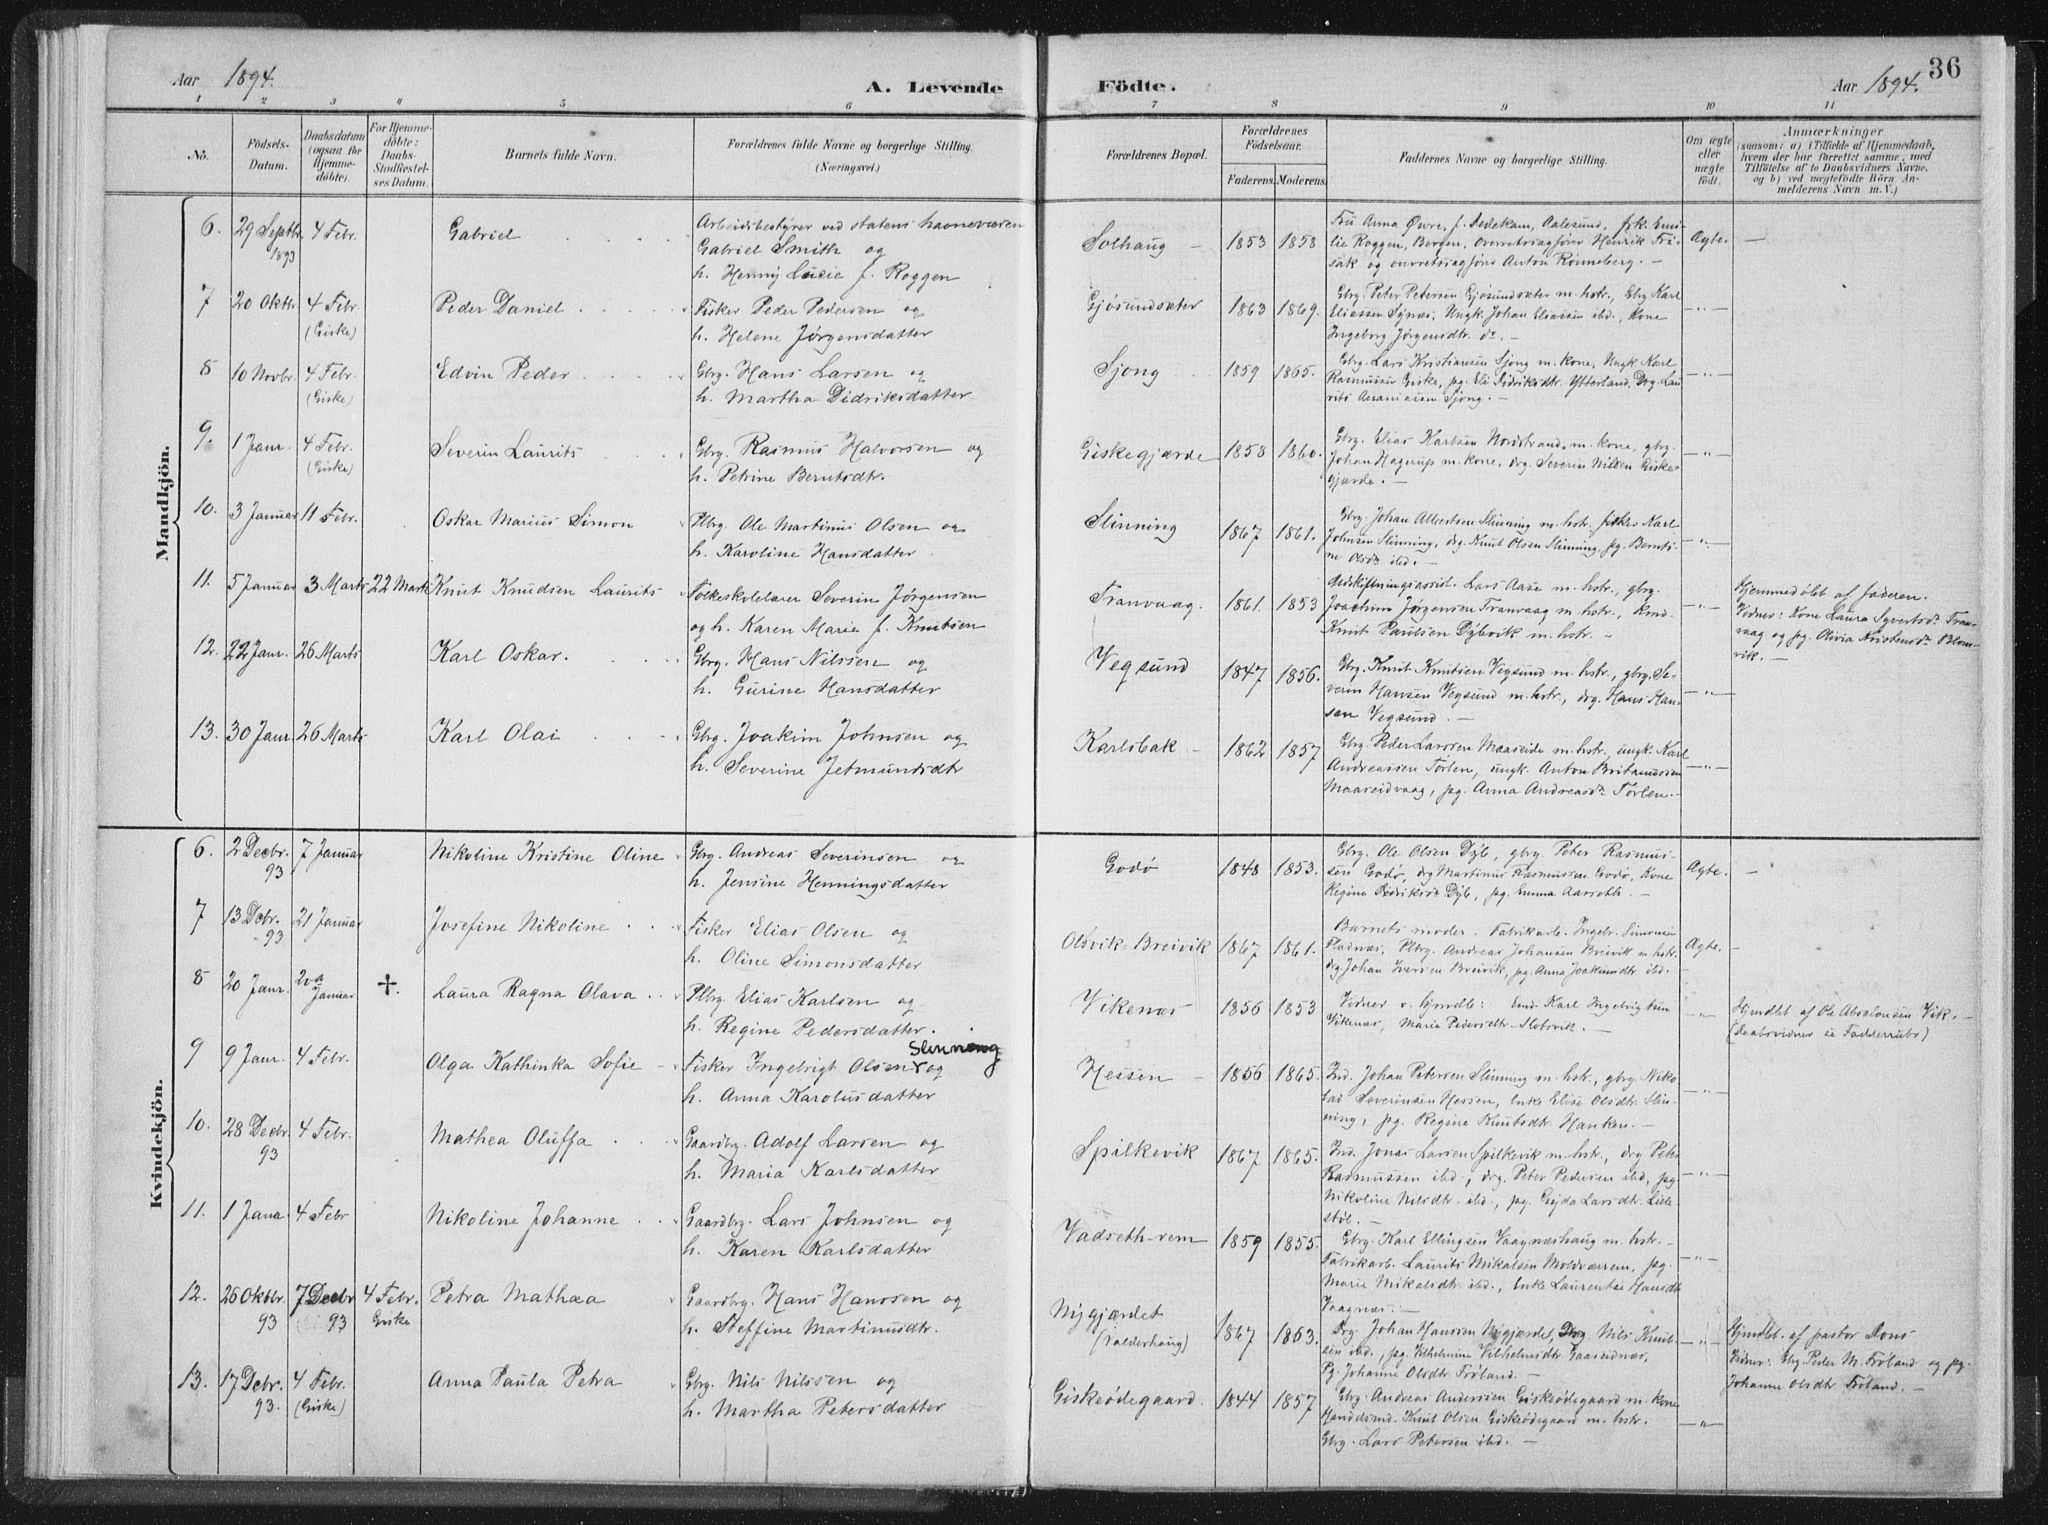 Aar 1894.
A. Levende
Födte.
Aar 1894.
36
1 2 3 4 5 6 7 8 9 10 11
No.
Födsels-
Datum.
Daabsdatum
(ogsaa for
Hjemme-
døbte).
For Hjemme-
døbte:
Daabs-
Stadfæstel-
ses Datum.
Barnets fulde Navn.
Forældrenes fulde Navne og borgerlige Stilling.
(Næringsvei.)
Forældrenes Bopæl.
Forældrenes
Födselsaar.
Faderens. Moderens.
Faddernes Navne og borgerlige Stilling.
Om ægte
eller
uægte
födt.
Anmærkninger
(saasom: a) i Tilfælde af Hjemmedaab,
hvem der har forrettet samme, med
Tilföielse af to Daabsvidners Navne,
og b) ved uægtefödte Börn An-
melderens Navn m. V.)
Mandkjön.
6. 29 Septbr. 1893 4 Febr. Gabriel
Arbeidsbestyrer ved statens havnevæsen
Gabriel Smith og
h. Henny Lucie f. Roggen
Solhaug 1853 1858
Fru Anna Øvre, f. Dedekam, Aalesund, frk. Emi-
lie Roggen, Bergen, Overretssagfører Henrik Fri-
sak og overretssagfører Anton Rønneberg. —
Ægte. —
7 20 Oktbr. 4 Febr. (Giske) Peder Daniel
Fisker Peder Pedersen og
h. Helene Jørgensdatter
Gjøsundsæter 1863 1869.
Gbrg. Peter Petersen Gjøsundsæter m. hstr., Gbrg Karl
Eliassen Synæs, Ungk. Johan Eliassen ibd., Kone
Ingeborg Jørgensdtr. do. —
—"—
8 10 Novbr. 4 Febr. (Giske) Edvin Peder
Gbrg. Hans Larsen og
h. Martha Didriksdatter
Sjong 1859 1865.
Gbrg. Lars Kristiansen Sjong m. kone, Ungk. Karl
Rasmussen Giske, pg. Eli Didriksdtr. Ytterland, Drg. Lau
rits Ananiassen Sjong. —
—"—
9. 1 Janr. 4 Febr. (Giske) Severin Laurits
Gbrg. Rasmus Halvorsen og
h. Petrine Berntsdtr.
Giskegjærde 1858 1860.
Gbrg. Elias Karlsen Nordstrand m. kone, gbrg.
Johan Hagerup m. kone, drg. Severin Nilsen Giske-
gjærde. —
—"—
10. 3 Januar 11 Febr. Oskar Marius Simon
Plbrg. Ole Martinus Olsen og
h. Karoline Hansdatter
Slinning 1867 1861.
Gbrg. Johan Albertsen Slinning m. hstr. fisker Karl
Johnsen Slinning, drg. Knut Olsen Slinning, pg. Bernti-
ne Olsdr. ibd. —
—"—
11. 5 Januar 3 Marts 22 Marts Knut Knudsen Laurits
Folkeskolelærer Severin Jørgensen
og h. Karen Marie f. Knutsen
Tranvaag. 1861. 1853
Lars Aase m. hstr., gbrg.
Joachim Jørgensen Tranvaag m. hstr.,
Knut Paulsen Dybvik m. hstr. —
—"—
Hjemmedøbt af faderen.
Vidner: Kone Laura Syvertsdr. Tran-
vaag og pg. Olivia Kristensdr. Blom-
vik. —
12. 22 Janr. 26 Marts Karl Oskar.
Gbrg. Hans Nilssen og
h. Gurine Hansdatter
Vegsund 1847 1856.
Gbrg. Knut Knutsen Vegsund m. hstr., gbrg. Se-
verin Hansen Vegsund m. hstr., drg. Hans Han-
sen Vegsund. —
—"—
13. 30 Janr. 26 Marts Karl Olai
Gbrg. Joakim Johnsen og
h. Severine Jetmundsdtr
Karlsbak 1862 1857
Gbrg. Peder Larssen Maaseide m. hstr., ungk. Karl
Andreassen Tørlen, ungk. Anton
Maaseidvaag, pg. Anna Andreasdr. Tørlen. —
—"—
Kvindekjön.
6. 2 Decbr. 93 7 Januar Nikoline Kristine Oline
Gbrg. Andreas Severinsen og
h. Jensine Henningsdatter
Godø 1848 1853.
Gbrg. Ole Olsen Dyb, gbrg Peter Rasmus-
sen Godø, drg Martinus Rasmussen Godø, Kone
Regine Didriksdr. Dyb, pg. Emma Aarseth. —
Ægte. —
7 13 Dcbr. 93 21 Januar Josefine Nikoline
Fisker Elias Olsen og
h. Oline Simonsdatter
Olsvik-Breivik 1867 1861.
Barnets moder. Fabrikarb. Ingebr. Simonsen
Fladnæs, Plbrg. Andreas Johansen Breivik m. hstr.
drg. Johan Iversen Breivik, pg. Anna Joakimsdtr ibd. —
Ægte. —
8 20 Janr. 20de Januar +. Laura Ragna Olava
Plbrg. Elias Karlsen og
h. Regine Pedersdatter.
Vikenæs 1856 1853
Vidner v. hjmdb: Ind. Karl Ingebrigtsen
Vikenæs, Marie Pedersdtr. Slotsvik. —
—"—
Hjmdbt af Ole Absalonsen Vik. —
(Daabsvidner se Fadderrubr)
9 9 Janr. 4 Febr. Olga Kathinka Sofie
Slinning
Fisker Ingebrigt Olsen og
h. Anna Karolusdatter
Hessen 1856 1865.
Ind. Johan Petersen Slinning m. hstr., gbrg. Niko-
lai Severinsen Hessen, enke Elise Olsdtr. Slin-
ning, pg. Regine Knutsdtr. Hanken. —
—"—
10. 28 Decbr. 93 4 Febr. Mathea Oluffa
Gaardbg. Adolf Larsen og
h. Maria Karlsdatter
Spilkevik 1867 1865.
Ind. Jonas Larsen Spilkevik m. hstr., drg Peter
Rasmussen ibd., drg. Peter Pedersen ibd, pg.
Nikoline Nilsdtr. ibd., pg. Gjda Larsdtr. Lille-
støl. —
—"—
11. 1 Jana 4 Febr Nikoline Johanne
Gaardbrg. Lars Johnsen og
h. Karen Karlsdatter
Vadseth-rem 1859 1855.
Gbrg. Karl Ellingsen Vaagnæshaug m. hstr. —
Fabrikarb. Laurits Mikalsen Moldværrem, pg.
Marie Mikalsdtr. ibd., Enke Laurentse Hansdtr
Vaagnæs. —
—"—
12. 26 Oktbr. 93 7 Decbr 93 4 Febr. Giske Petra Mathea
Gaardbrg. Hans Hanssen og
h. Steffine Martinusdtr.
Nygjærdet (Valderhaug) 1867 1863.
Drg. Johan Hanssen Nygjærdet, Drg. Nils Knut-
sen ibd., pg. Vilhelmine Vilhelmsdtr. Gaaseidnæs,
Pg. Johanne Olsdtr. Frøland. —
—"—
Hjmdbt. af pastor Dons
Vidner: Gbg. Peder M. Frøland og pg.
Johanne Olsdtr Frøland. —
13. 17 Dcbr. 93. 4 Febr. (Giske) Anna Paula Petra
Gbrg. Nils Nilssen og
h. Martha Petersdatter
Giskeødegaard. 1844 1857
Gbrg. Andreas Andersen Giskeødegaard m. kone
Handelsmd. Knut Olsen Giskeødegaard m. hstr.
Gbrg. Lars Petersen ibd. —
—"—